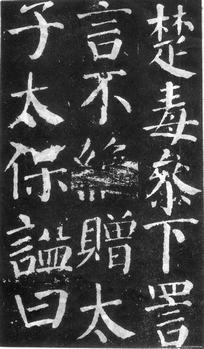 楚毒叅下詈
言不絶贈太
子太保謚曰